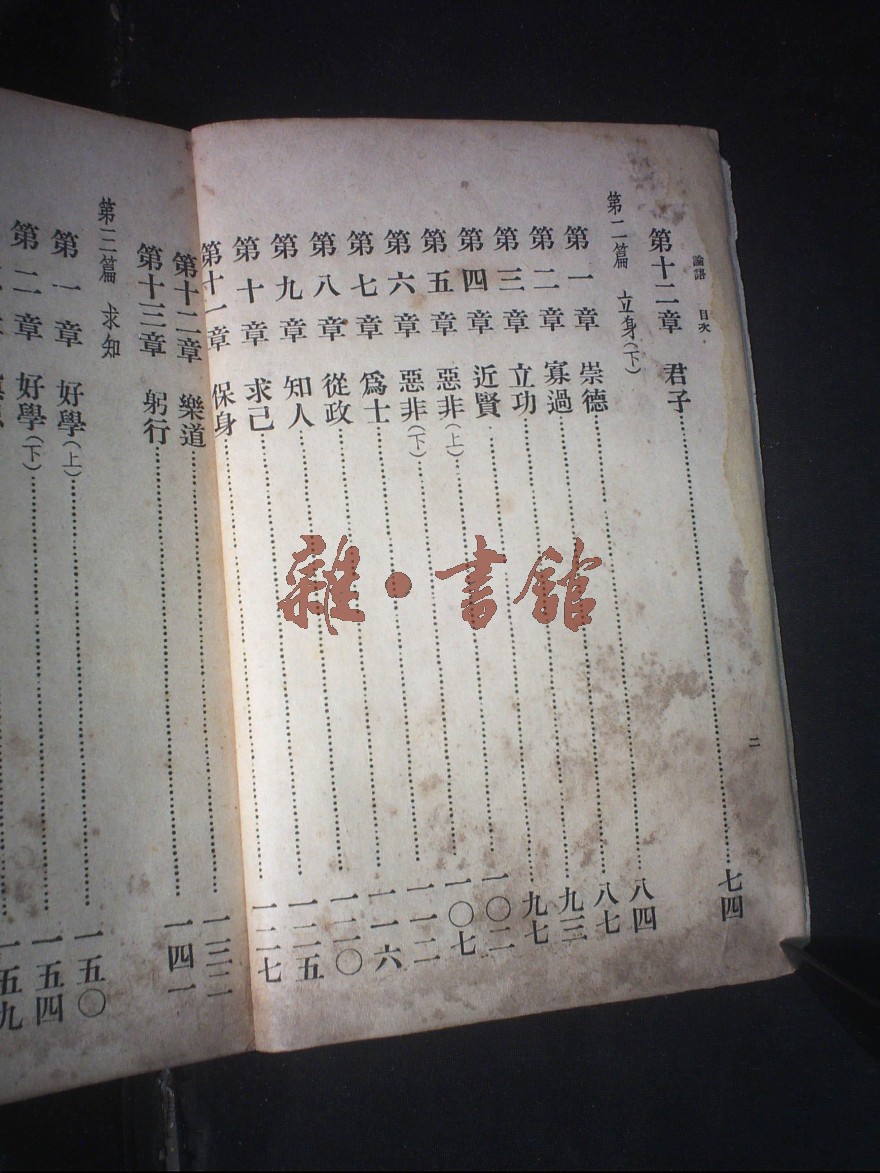 論語 目次
二
第十二章 君子………七四
第二篇 立身(下)
第一章 崇德………八四
第二章 寡過………八七
第三章 立功………九三
第四章 近賢………九七
第五章 惡非(上)………一〇二
第六章 惡非(下)………一〇七
第七章 爲士………一一二
第八章 從政………一一六
第九章 知人………一二〇
第十章 求己………一二五
第十一章 保身………一二七
第十二章 樂道………一三二
第十三章 躬行………一四一
第三篇 求知
第一章 好學(上)………一五〇
第二章 好學(下)………一五四
一五九
雜·書館